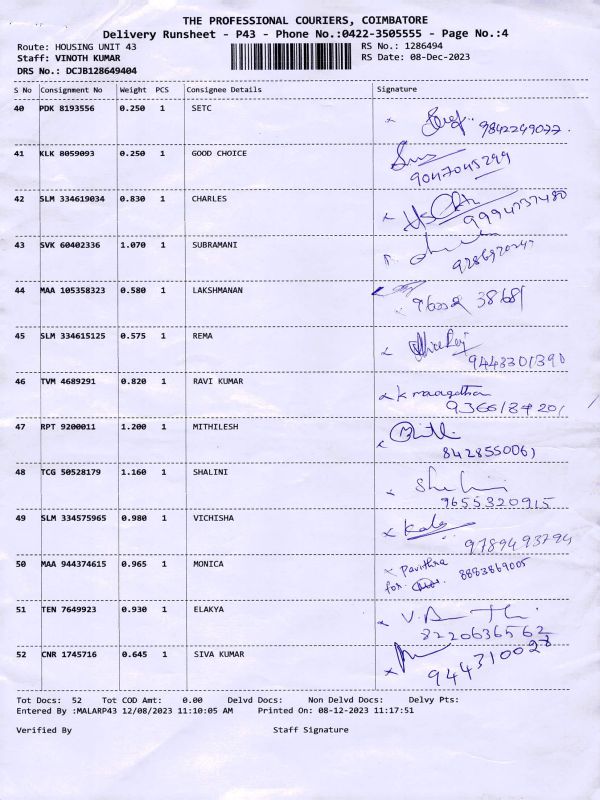 THE PROFESSIONAL COURIERS, COIMBATORE
Delivery Runsheet - P43 - Phone No.:0422-3505555 - Page No.:4
Route: HOUSING UNIT 43 RS No.: 1286494
Staff: VINOTH KUMAR RS Date: 08-Dec-2023
DRS No.: DCJB128649404
S No Consignment No Weight PCS Consignee Details Signature
40 PDK 8193556 0.250 1 SETC
9842249077.
41 KLK 8059093 0.250 1 GOOD CHOICE
9047045299
42 SLM 334619034 0.830 1 CHARLES
9994737480
43 SVK 60402336 1.070 1 SUBRAMANI
44 MAA 105358323 0.580 1 LAKSHMANAN
38681
45 SLM 334615125 0.575 1 REMA
9443301390
46 TVM 4689291 0.820 1 RAVI KUMAR
47 RPT 9200011 1.200 1 MITHILESH
8428550061
48 TCG 50528179 1.160 1 SHALINI
9655320915
49 SLM 334575965 0.980 1 VICHISHA
Kala
9789493794
50 MAA 944374615 0.965 1 MONICA
Pavithra 8883869005
for
51 TEN 7649923 0.930 1 ELAKYA
8220636562
52 CNR 1745716 0.645 1 SIVA KUMAR
Tot Docs: 52 Tot COD Amt: 0.00 Delvd Docs: Non Delvd Docs: Delvy Pts:
Entered By :MALARP43 12/08/2023 11:10:05 AM Printed On: 08-12-2023 11:17:51
Verified By Staff Signature